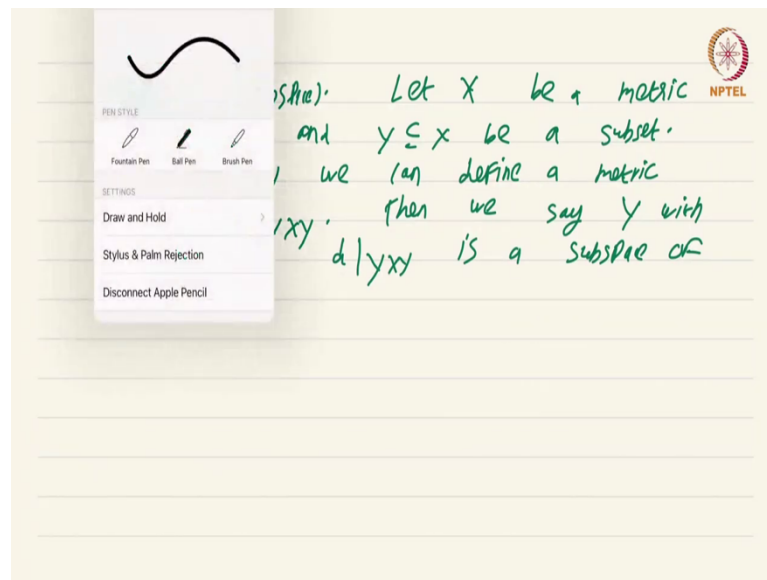 NPTEL
PEN STYLE
Fountain Pen Ball Pen Brush Pen
SETTINGS
Draw and Hold
Stylus & Palm Rejection
Disconnect Apple Pencil
Let X be a metric
and Y ⊆ X be a subset.
we can define a metric
Then we say Y with
d|Y×Y is a subspace of